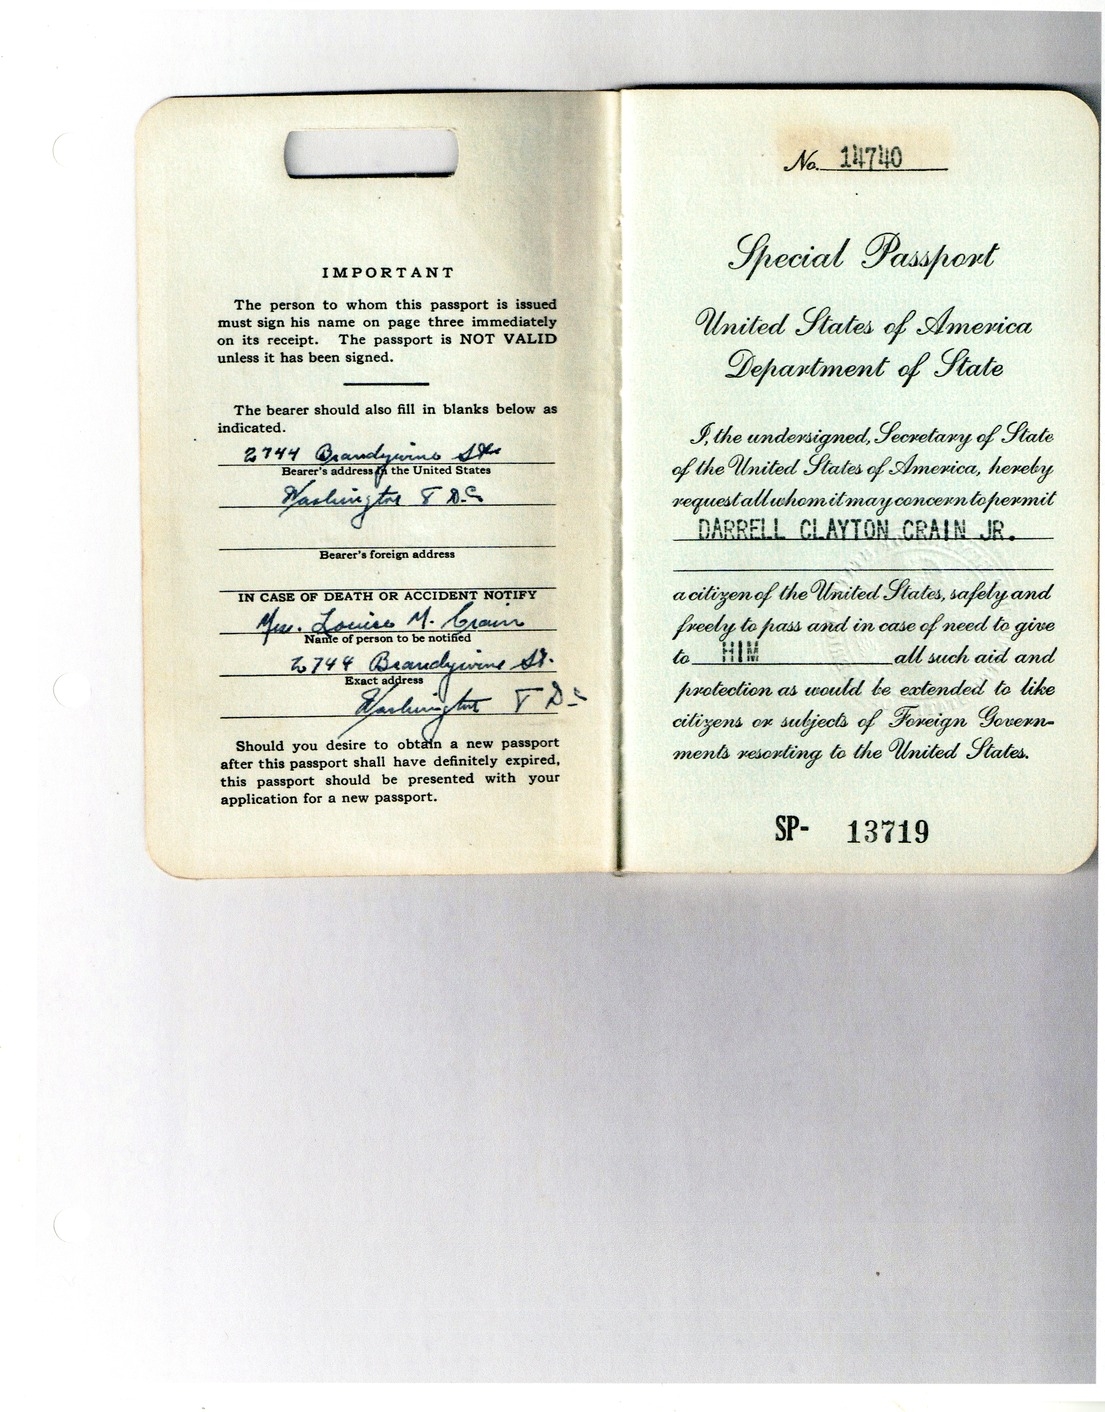 IMPORTANT
The person to whom this passport is issued
must sign his name on page three immediately
on its receipt. The passport is NOT VALID
unless it has been signed.
The bearer should also fill in blanks below as
indicated.
2744 Brandywine
Bearer's address in the United States
Washington 8 D.C
Bearer's foreign address
IN CASE OF DEATH OR ACCIDENT NOTIFY
Mrs. Louise M. Crain
Name of person to be notified
2744 Brandywine St.
Exact address
Washington 8 D.C
Should you desire to obtain a new passport
after this passport shall have definitely expired,
this passport should be presented with your
application for a new passport.
No. 14740
Special Passport
United States of America
Department of State
I, the undersigned, Secretary of State
of the United States of America, hereby
request all whom it may concern to permit
DARRELL CLAYTON CRAIN JR.
a citizen of the United States, safely and
freely to pass and in case of need to give
to HIM all such aid and
protection as would be extended to like
citizens or subjects of Foreign Govern-
ments resorting to the United States.
SP- 13719